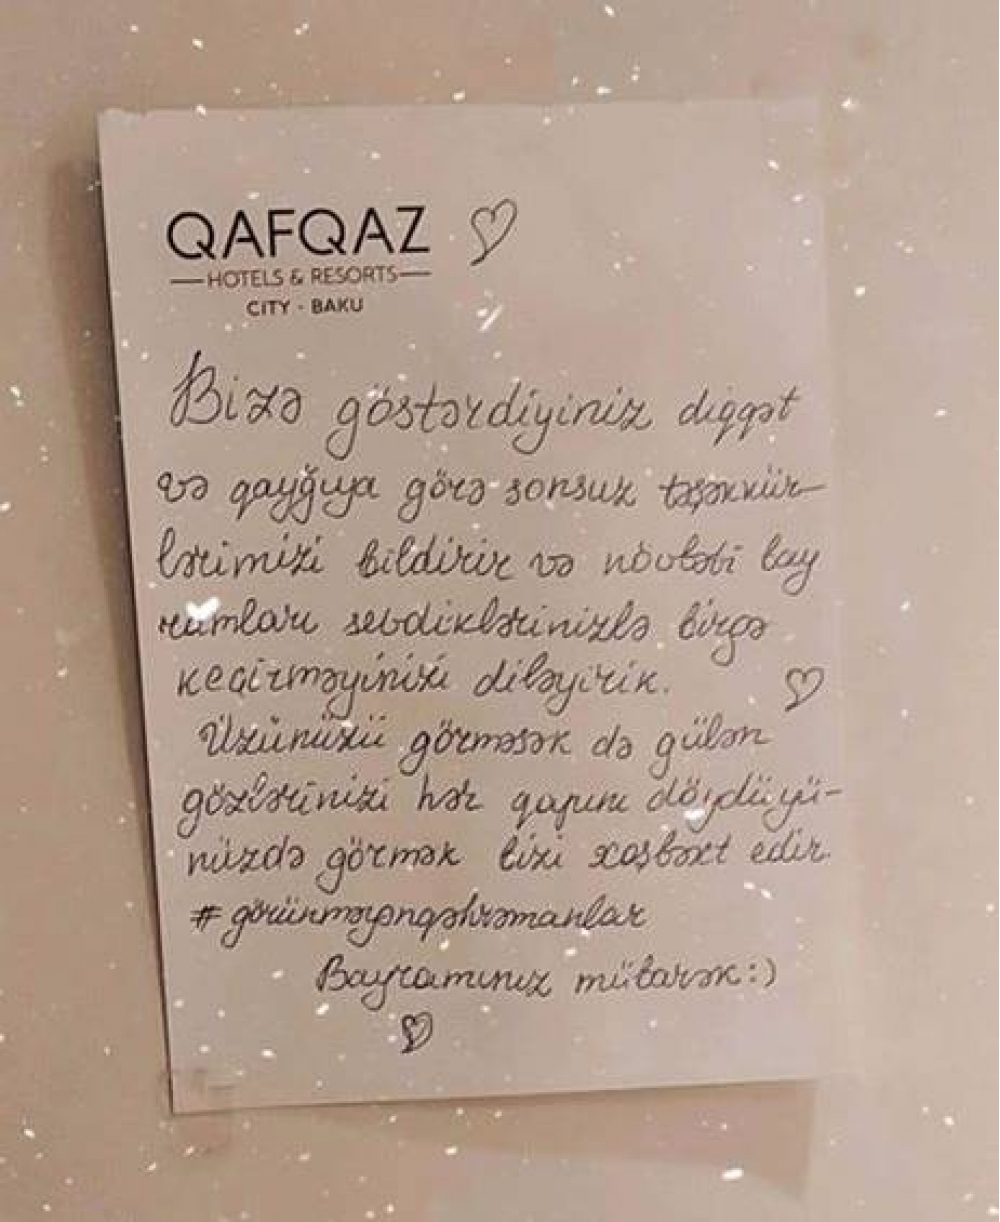 QAFQAZ
HOTELS & RESORTS
CITY - BAKU
Bizə göstərdiyiniz diqqət
və qayğıya görə sonsuz təşəkkür-
lərimizi bildirir və növbəti bay
ramları sevdiklərinizlə birgə
keçirməyinizi diləyirik.
Üzünüzü görməsək də gülən
gözlərinizi hər qapını döydüyü-
nüzdə görmək bizi xoşbəxt edir.
#görünməyənqəhrəmanlar
Bayramınız mübarək:)